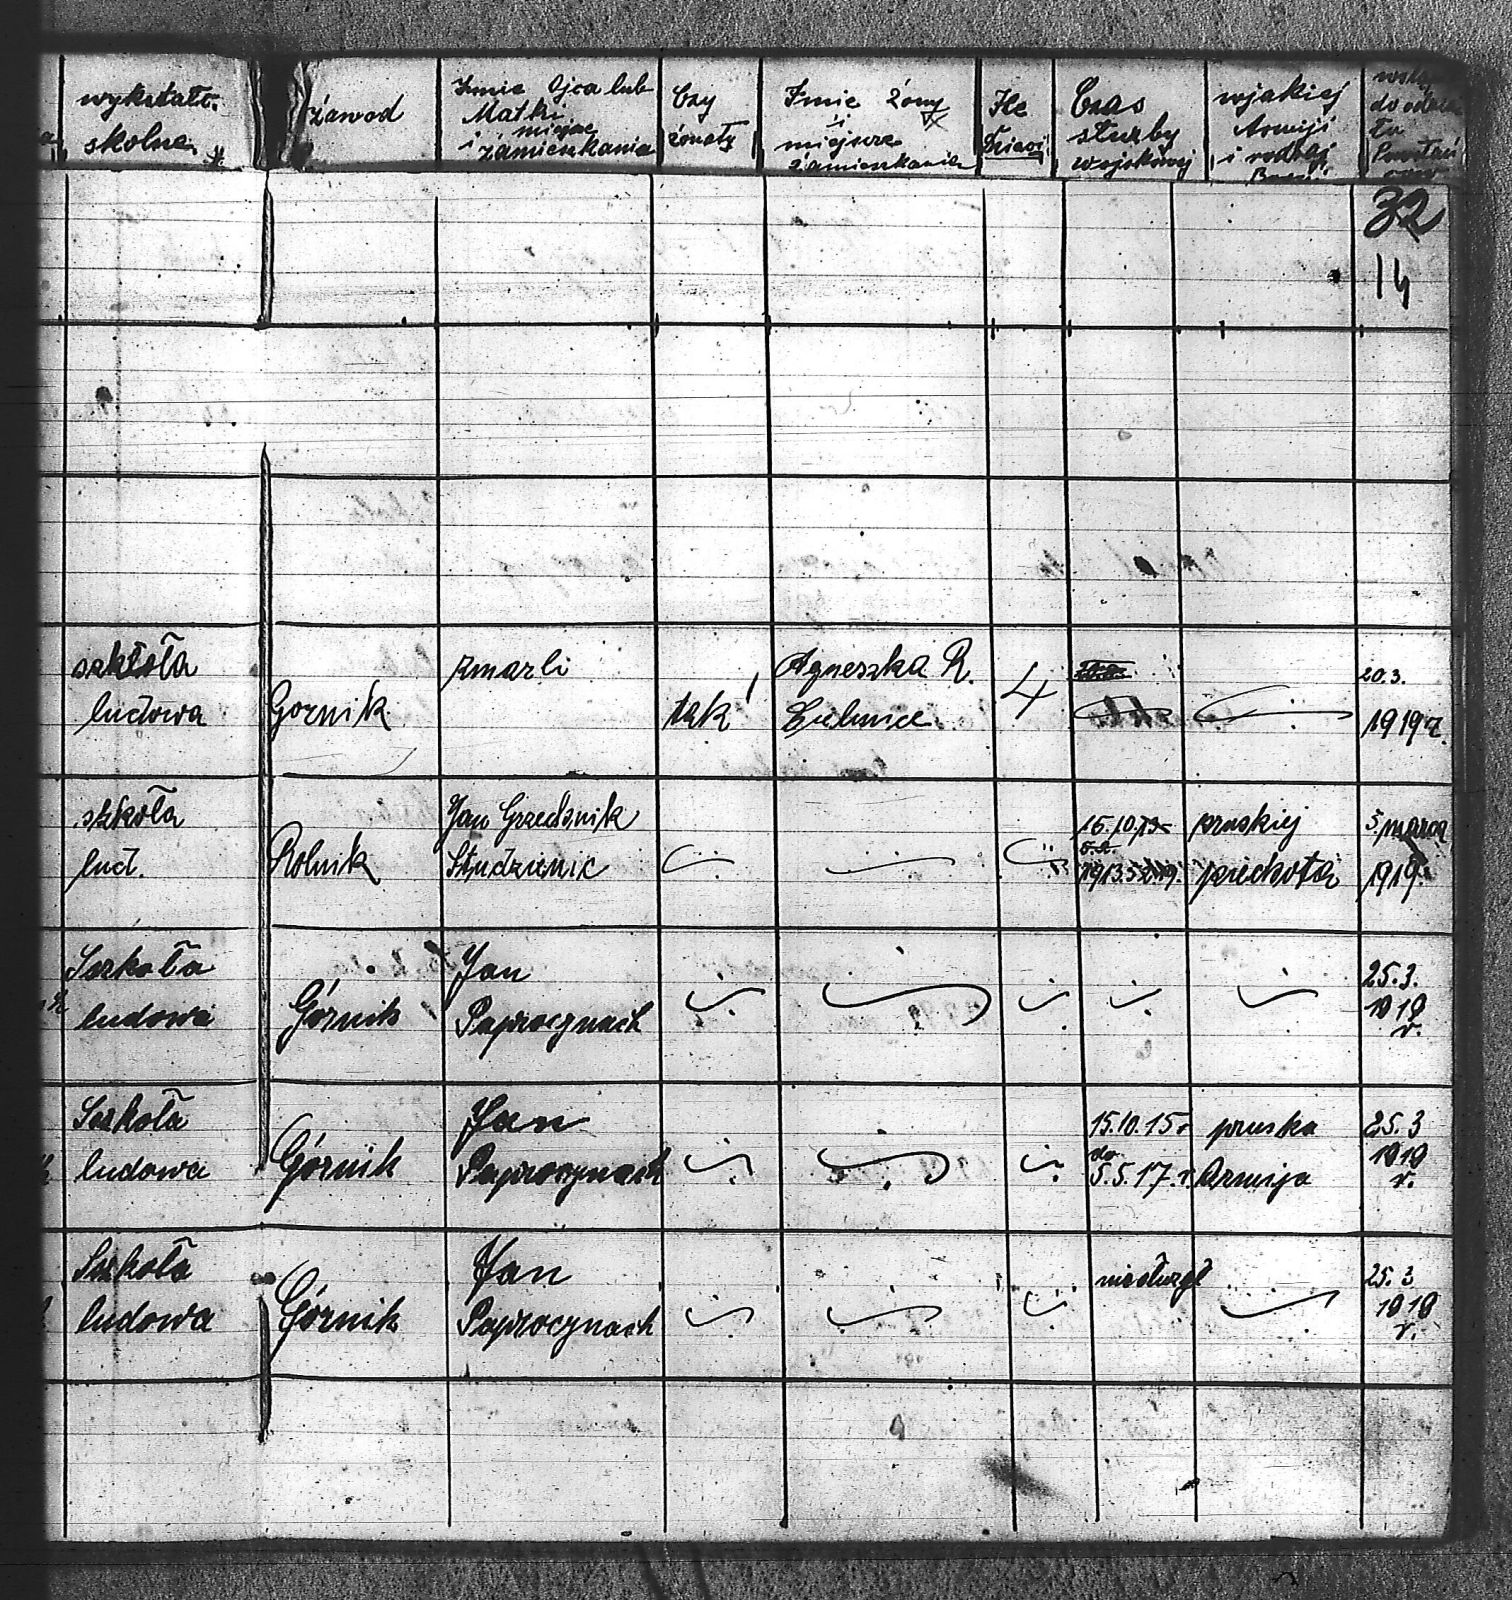 wykształc.
skolne
zawod
Imie Ojca lub
Matki
i miejsc
zamieszkania
Czy
żonaty
Imie żony
i
miejsce
zamieszkania
Ile
Dzieci
Czas
służby
wojskowej
wjakiej
Armiji
i rodzaj
Broni
32
14
szkoła
ludowa
Gornik
zmarli
tak
Agneszka R.
4
20.3.
1919 r.
szkoła
lud.
Rolnik
Jan
Studzienic
pruskiej
piechota
5. marca
1919.
Szkoła
ludowa
Górnik
Jan
Paprocynach
25.3.
1919
r.
Szkoła
ludowa
Górnik
Jan
Paprocynach
15.10.15 r
do
5.5.17. r.
pruska
Armija
25.3
1919
r.
Szkoła
ludowa
Górnik
Jan
Paprocynach
25.3
1919
r.